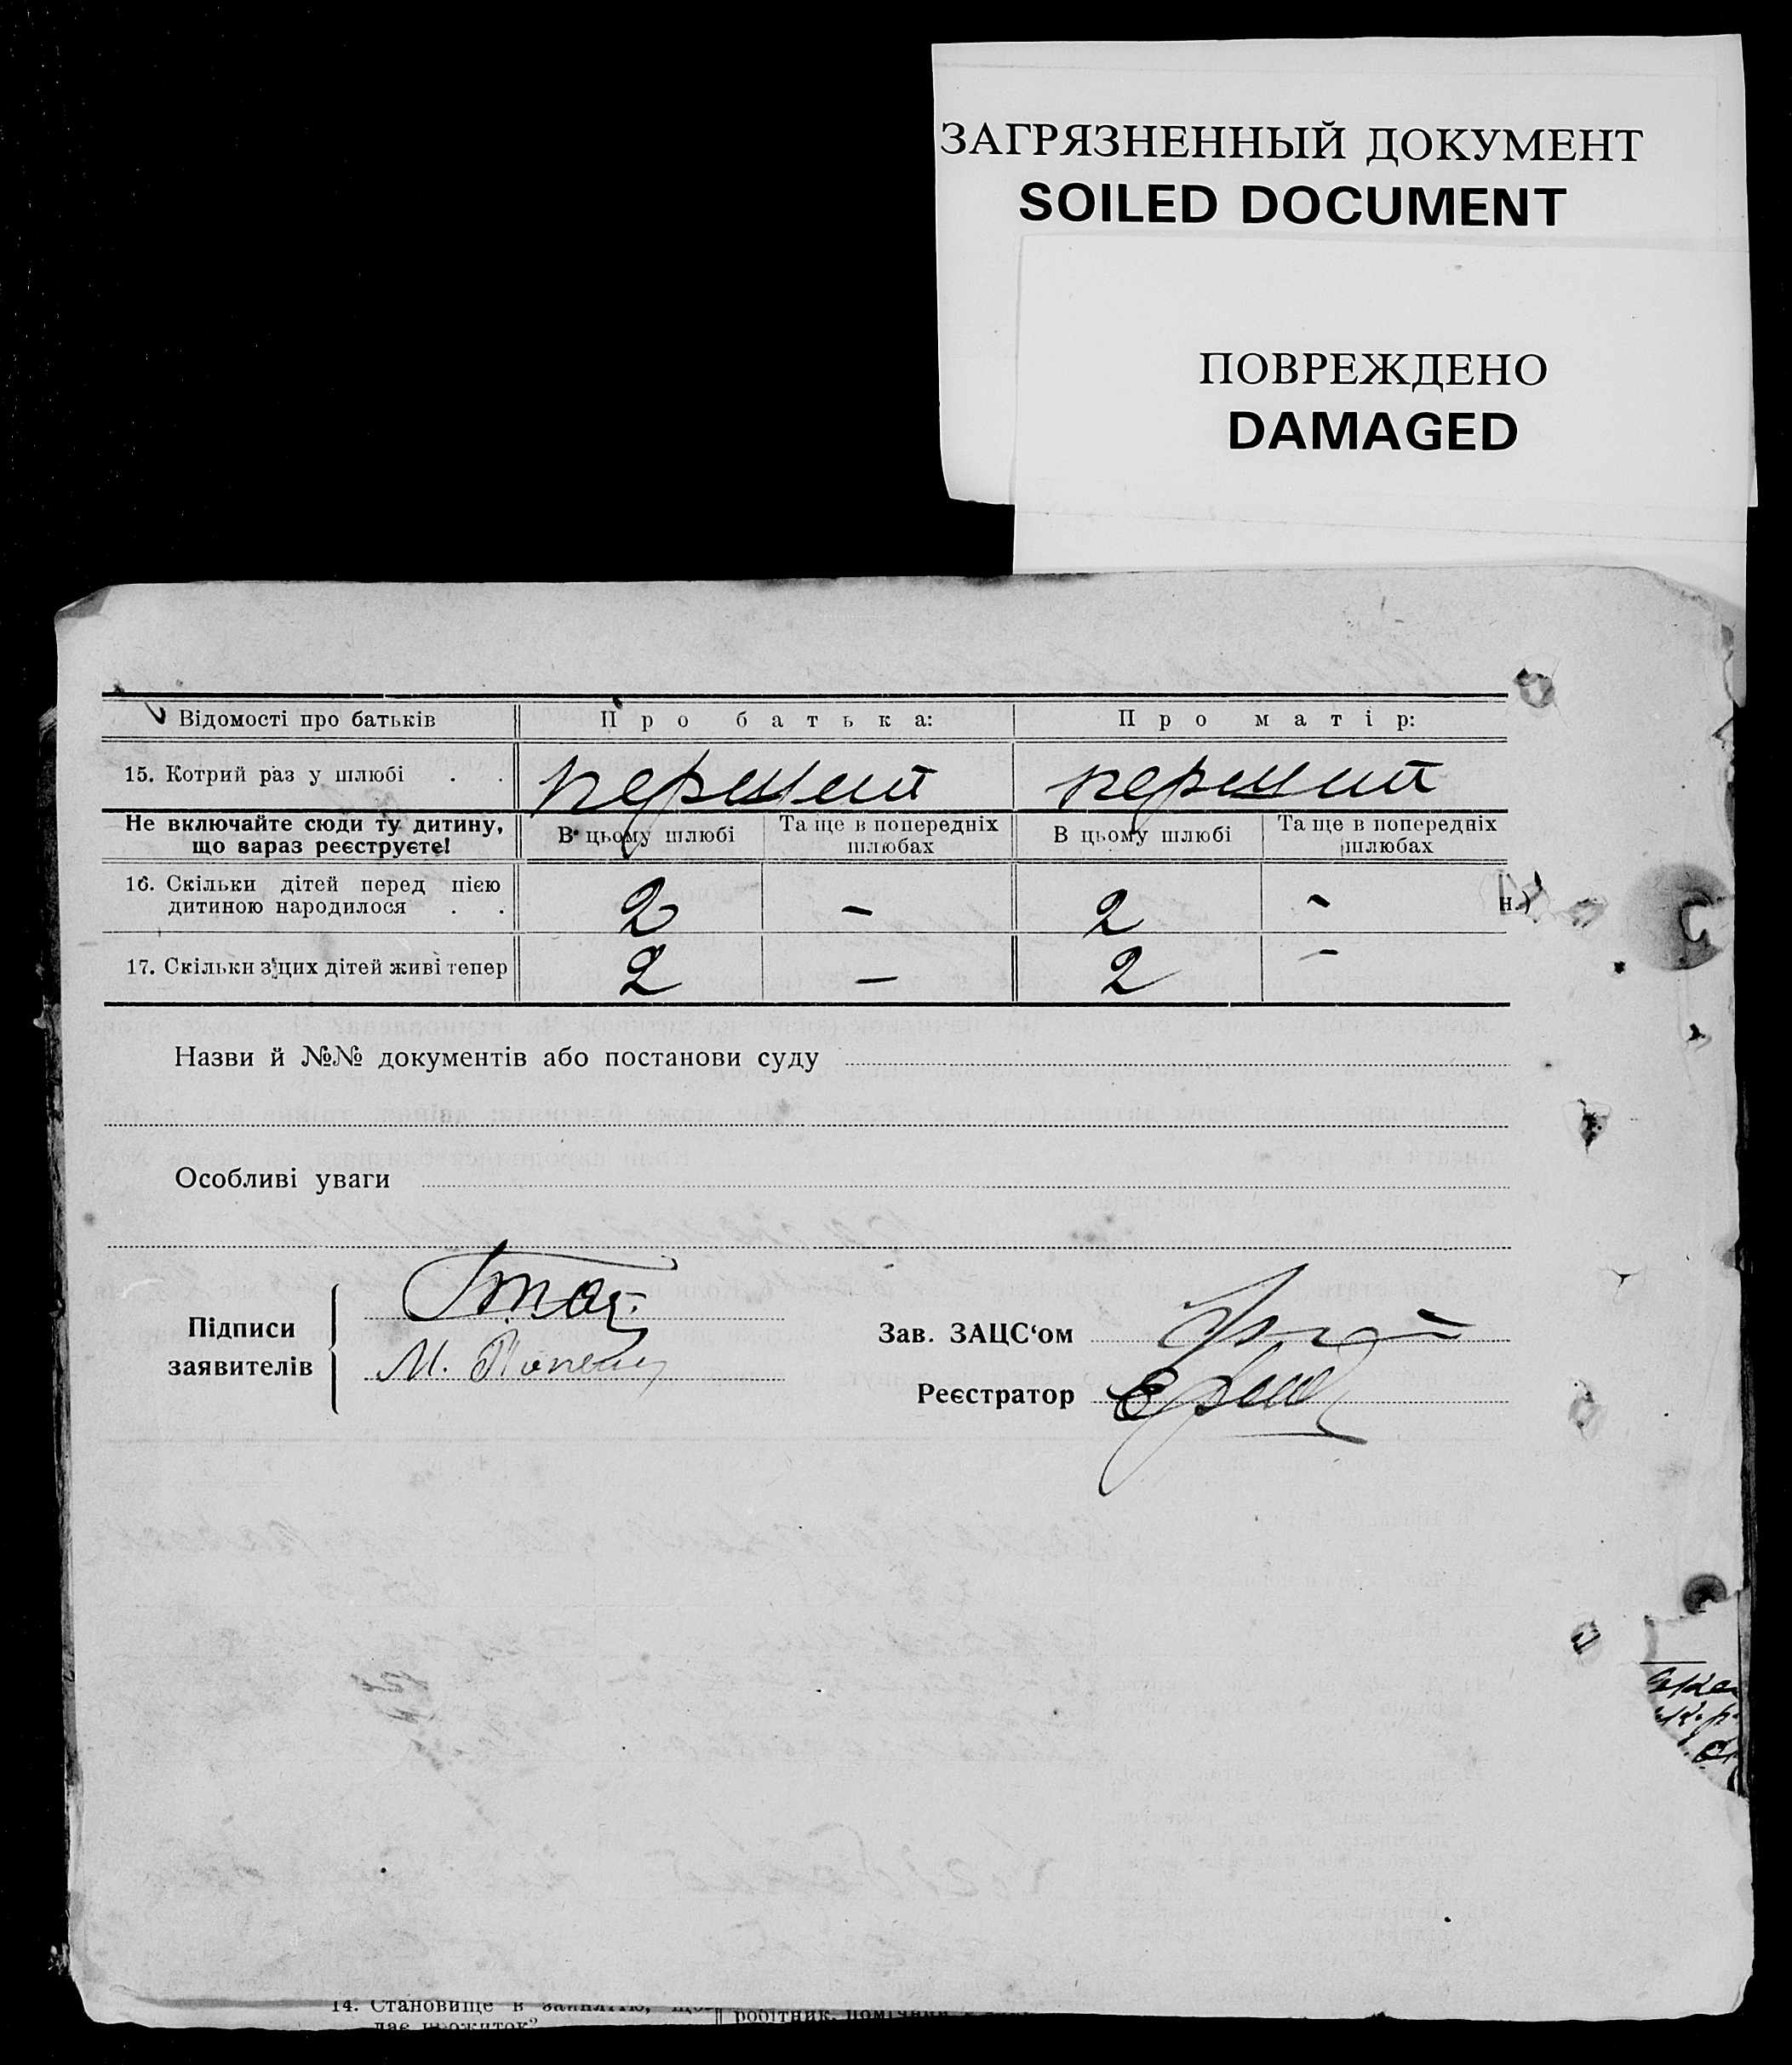 ЗАГРЯЗНЕННЫЙ ДОКУМЕНТ
SOILED DOCUMENT
ПОВРЕЖДЕНО
DAMAGED
Відомості про батьків Про батька: Про матір:
15. Котрий раз у шлюбі . . перший перший
Не включайте сюди ту дитину, що вараз реєструєте! В цьому шлюбі Та ще в попередніх шлюбах В цьому шлюбі Та ще в попередніх шлюбах
16. Скільки дітей перед цією
дитиною народилося . . 2 – 2 –
н.)
17. Скільки з цих дітей живі тепер 2 – 2 –
Назви й №№ документів або постанови суду
Особливі уваги
Підписи
заявителів
М.
Зав. ЗАЦС‘ом
Реєстратор
14. Становище в занятію, що
дає прожиток? робітник, помічник